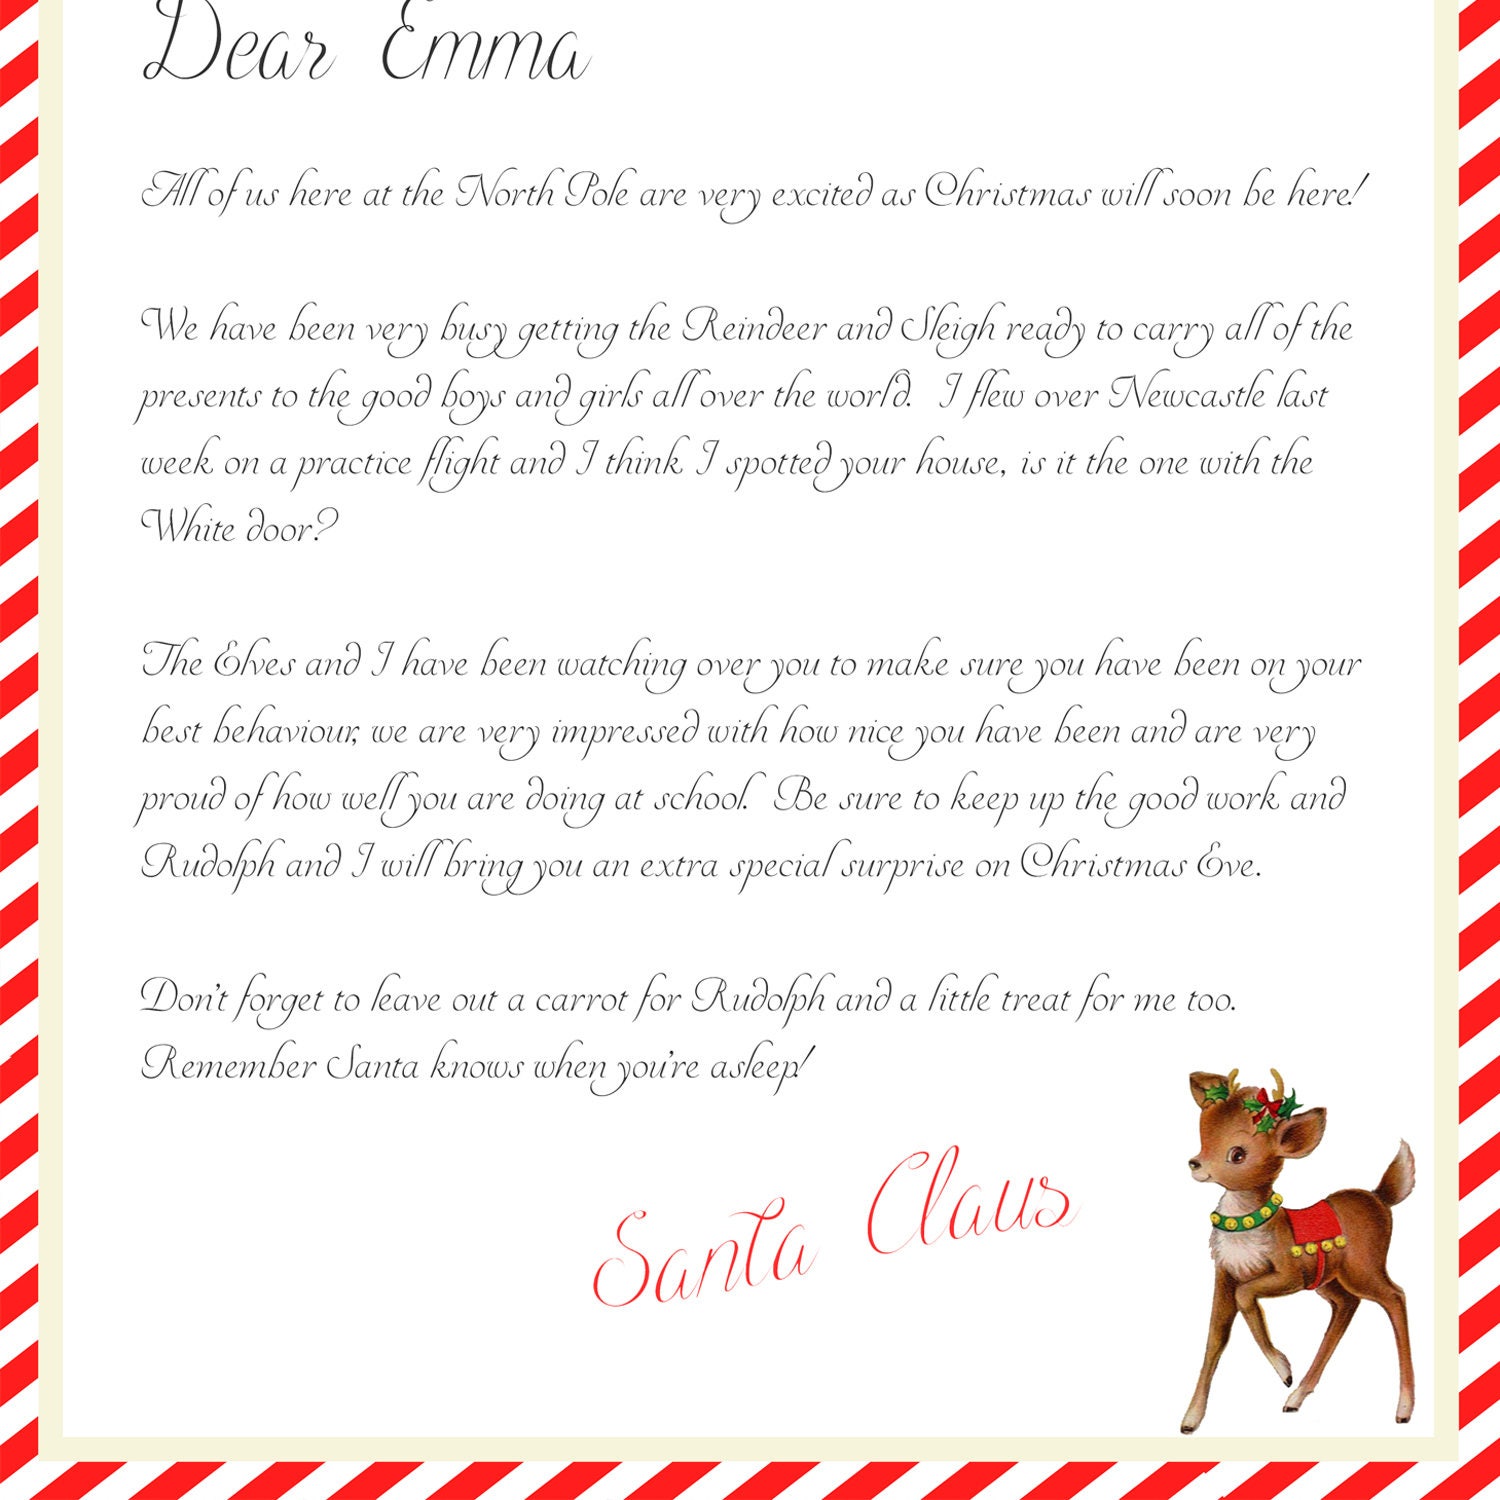 Dear Emma
All of us here at the North Pole are very excited as Christmas will soon be here!
We have been very busy getting the Reindeer and Sleigh ready to carry all of the
presents to the good boys and girls all over the world.  I flew over Newcastle last
week on a practice flight and I think I spotted your house, is it the one with the
White door?
The Elves and I have been watching over you to make sure you have been on your
best behaviour, we are very impressed with how nice you have been and are very
proud of how well you are doing at school.  Be sure to keep up the good work and
Rudolph and I will bring you an extra special surprise on Christmas Eve.
Don't forget to leave out a carrot for Rudolph and a little treat for me too.
Remember Santa knows when you're asleep!
Santa Claus